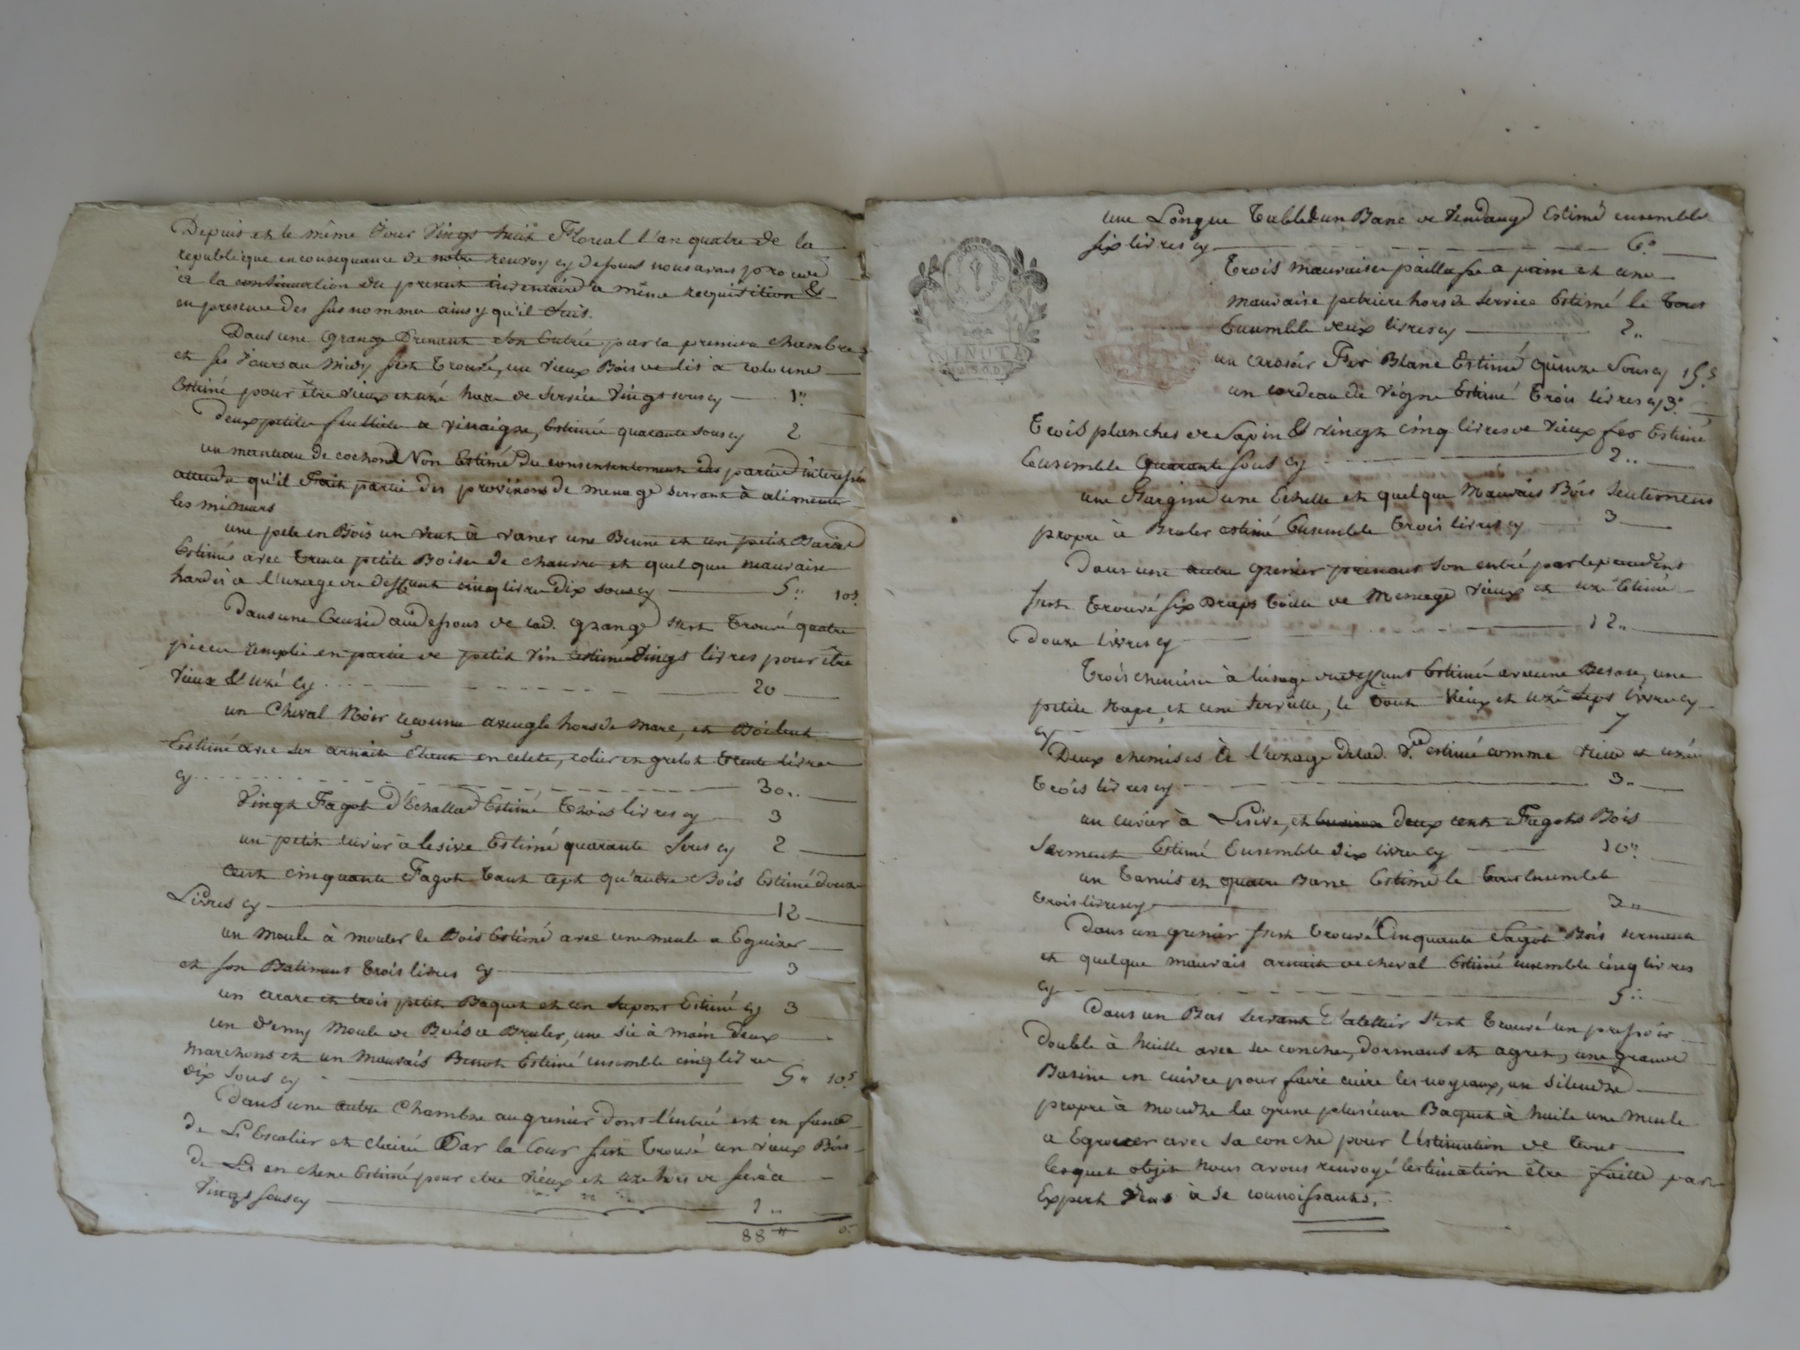 Depuis et le même Jour Vingt huit Floreal l'an quatre de la
republicque en consequance de notre renvoy cy dessus nous avons procedé
à la continuation du present inventaire a même requisition &
en presence des susnommé ainsy qu'il suit.
Dans une Grange Prenant son Entrée par la premiere chambre
et ses Jours au Midy s'est trouvé, un vieux Bois de lit a colonne
Estimé pour être vieux et uzé hors de service vingt sous cy 1"
Deux petite feuillette a vinaigre, Estimé quarante sous cy 2
un manteau de cochond Non Estimé du consententement des partied interessés
attendu qu'il Fait partie des provisions de menage servant à alimenter
les mineurs
une pele en Bois un Vent à Vaner une Benne et un petit Baril
Estimés avec trente petite Boise de chanvre et quelque mauvaise
hardes a l'uzage du deffunt cinq livre Dix sous cy 5" 10s
Dans une Ecurie au dessous de lad. Grange s'est trouvé quatre
piece remplie en partie de petit vin estimé Vingt livres pour être
Vieux & uzé cy 20
un Cheval Noir aveugle hors de Marc, et
Estimé avec ses arnait colier et grelot trente livre
cy 30"
Vingt Fagot d'Echallad Estimé trois livres cy 3
un petit cuvier à lesive Estimé quarante sous cy 2
Cent cinquante Fagot tant cept qu'autre Bois Estimé douze
Livres cy 12
un Moule à mouler le Bois Estimé avec une meule a Eguizer
et son Batiment trois livres cy 3
un arare et trois petit Baquet et un Estimé cy 3
un demy Moule de Bois a Bruler, une sie à main deux
Marchons et un Mauvais Benot Estimé ensemble cinq livre
dix sous cy 5" 10s
Dans une autre chambre au grenier dont l'entrée est en face
de L'Escalier et clairée Par la Cour s'est trouvé un vieux Bois
de Li en chene Estimé pour etre vieux et uze hors de service
Vingt sous cy 1"
88"
une Longue table & un Banc de Vendange Estimé ensemble
six livres cy 6"
trois mauvaise paillasse a pain et une
mauvaise petriere hors de service Estimé le tous
Ensemble deux livres cy 2"
un arosoir Fer Blanc Estimé quinze sous cy 15s
un cordeau de vigne Estimé trois livres cy 3"
trois planches de sapin & vingt cinq livres de vieux fer Estimé
Ensemble quarante sous cy 2"
une une Echelle et quelque Mauvais Bois seulement
propre à Bruler estimé Ensemble trois livres cy 3
Dans une autre grenier prenant son entré par le
s'est trouvé six Draps toille de Menage vieux et uzé Estimé
douze livres cy 12"
trois chemise à l'usage du deffunt Estimé avec une Besase, une
petite Nape, et une serviette, le tout Vieux et uzé sept livre cy
cy 7
Deux chemises à l'uzage de lad. Ve estimé comme vieu et uzée
trois livres cy 3"
un cuvier à Lisive, et deux cent Fagots Bois
Sarment Estimé Ensemble dix livre cy 10"
un tamis et quatre Banc Estimé le tous Ensemble
trois livres cy 3"
Dans un grenier s'est trouvé Cinquante Fagot Bois serment
et quelque mauvais arnait de cheval Estimé ensemble cinq livres
cy 5"
Dans un Bas servant D'atellier s'est trouvé un pressoir
double à huille avec ses conches, dormans et agret, une grande
Basine en cuivre pour faire cuire les noyeaux, un silendre
propre à moudre la grene plusieure Baquet à huile une meule
a Eguizer avec sa conche pour l'estimation de tout
lesquet objet Nous avons renvoyé l'estimation être faitte par
Expert à se connoissants.